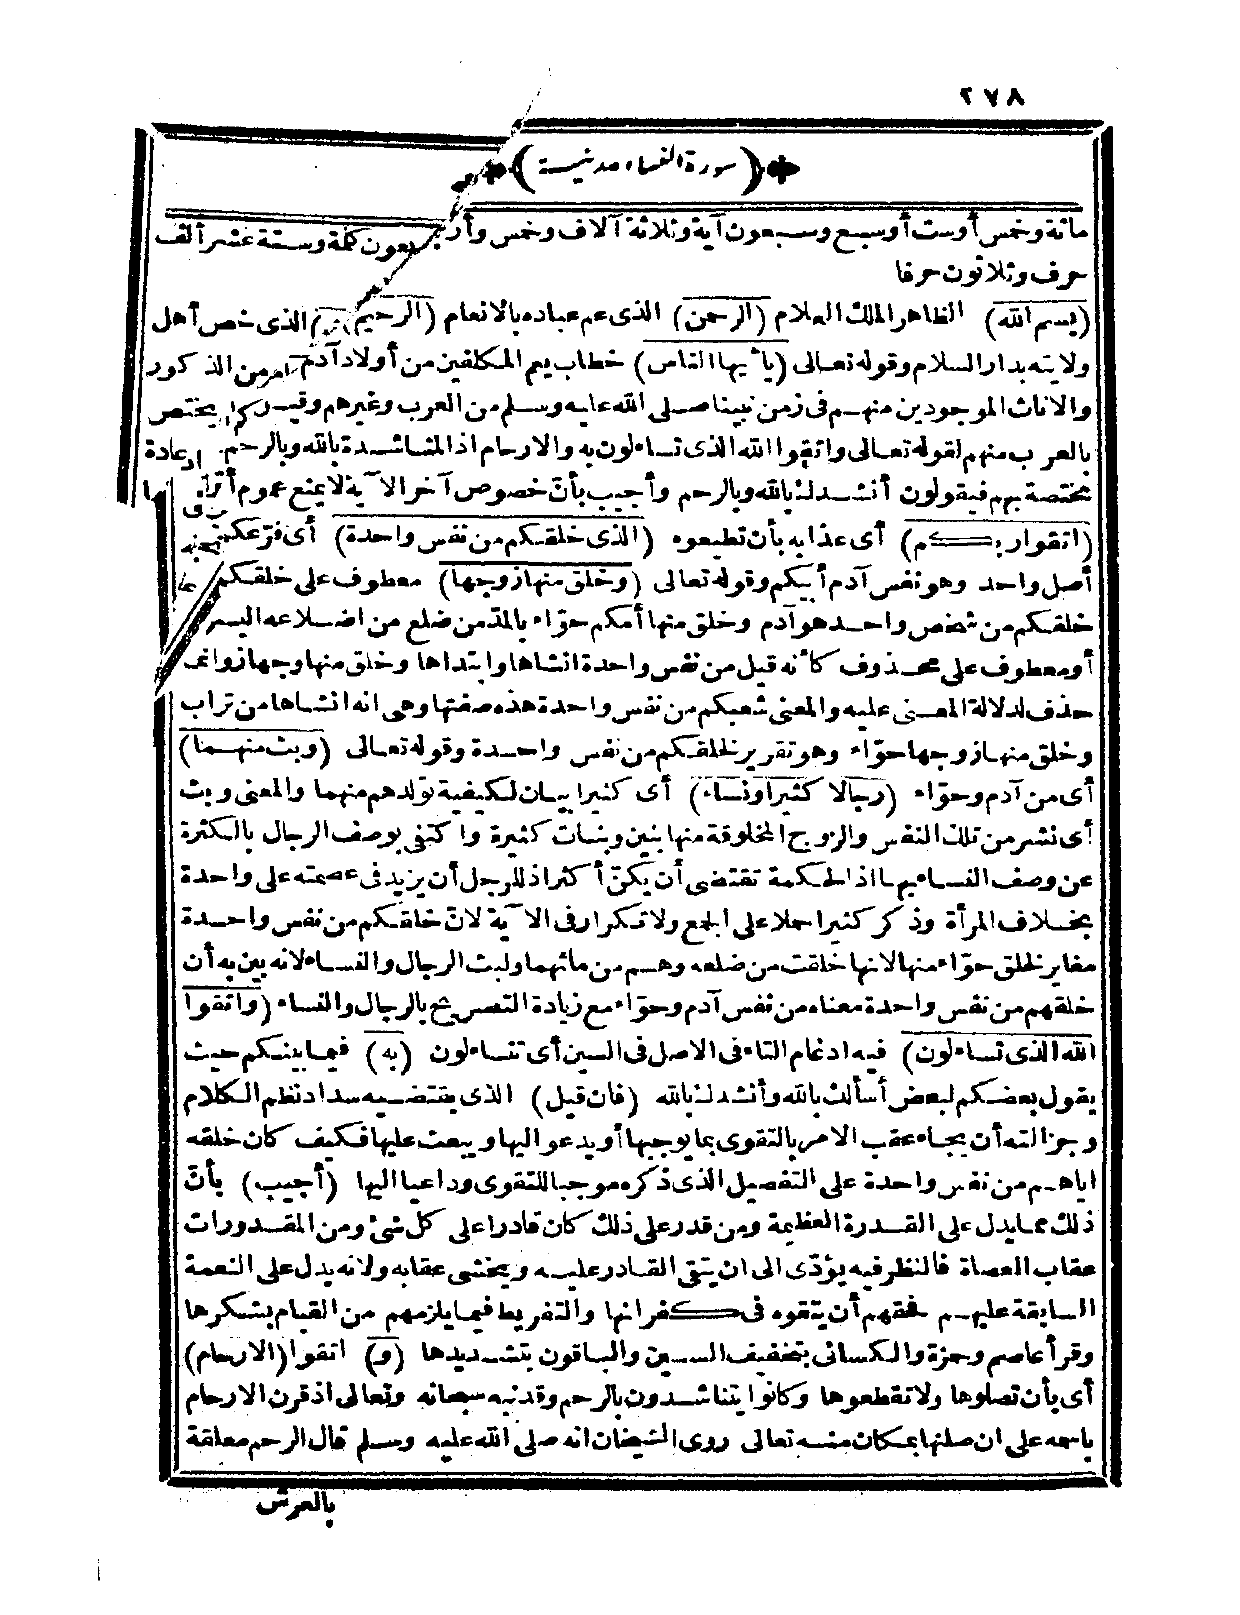 ٢٧٨
سورة النساء مدنية
مائة وخمس أوست أوسبع وسبعون آية وثلاثة آلاف وخمس وأربعون كلمة وستة عشر ألف
حرف وثلاثون حرفا
(بسم الله) الظاهر الملك العلام (الرحمن) الذى عم عباده بالانعام (الرحيم) الذى خص أهل
ولايته بدار السلام وقوله تعالى (يا أيها الناس) خطاب يعم المكلفين من أولاد آدم من الذكور
والاناث الموجودين منهم فى زمن نبينا صلى الله عليه وسلم من العرب وغيرهم وقيل يختص
بالعرب منهم لقوله تعالى واتقوا الله الذى تساءلون به والارحام اذ المناشدة بالله وبالرحم عادة
مختصة بهم فيقولون أنشدك بالله وبالرحم وأجيب بأن خصوص آخر الآية لا يمنع عموم أولها
(اتقوا ربكم) أى عذابه بأن تطيعوه (الذى خلقكم من نفس واحدة) أى فرّعكم من
أصل واحد وهو نفس آدم أبيكم وقوله تعالى (وخلق منها زوجها) معطوف على خلقكم
خلقكم من شخص واحد هو آدم وخلق منها أمكم حوّاء بالمدّ من ضلع من اضلاعه اليسرى
أو معطوف على محذوف كأنه قيل من نفس واحدة انشاها وابتداها وخلق منها زوجها وانما
حذف لدلالة المعنى عليه والمعنى شعبكم من نفس واحدة هذه صفتها وهى انه انشاها من تراب
وخلق منها زوجها حوّاء وهو تقرير لخلقكم من نفس واحدة وقوله تعالى (وبث منهما)
أى من آدم وحوّاء (رجالا كثيرا ونساء) أى كثيرا بيان لكيفية تولدهم منهما والمعنى وبث
أى نشر من تلك النفس والزوج المخلوقة منها بنين وبنات كثيرة واكتفى بوصف الرجال بالكثرة
عن وصف النساء بها اذ الحكمة تقتضى أن يكنّ أكثر اذ للرجل أن يزيد فى عصمته على واحدة
بخلاف المرأة وذكر كثيرا حملا على الجمع ولا تكرار فى الآية لانّ خلقكم من نفس واحدة
مغاير لخلق حوّاء منها لانها خلقت من ضلعه وهم من مائهما ولبث الرجال والنساء لانه بين به أن
خلقهم من نفس واحدة معناه من نفس آدم وحوّاء مع زيادة التصريح بالرجال والنساء (واتقوا
الله الذى تساءلون) فيه ادغام التاء فى الاصل فى السين أى تتساءلون (به) فيما بينكم حيث
يقول بعضكم لبعض أسألك بالله وأنشدك بالله (فان قيل) الذى يقتضيه سداد نظم الكلام
وجزالته أن يجاء عقب الامر بالتقوى بما يوجبها أو يدعو اليها ويبعث عليها فكيف كان خلقه
اياهم من نفس واحدة على التفصيل الذى ذكره موجبا للتقوى وداعيا اليها (أجيب) بأنّ
ذلك مما يدل على القدرة العظيمة ومن قدر على ذلك كان قادرا على كل شئ ومن المقدورات
عقاب العصاة فالنظر فيه يؤدّى الى ان يتقى القادر عليه ويخشى عقابه ولانه يدل على النعمة
السابقة عليهم فحقهم أن يتقوه فى كفرانها والتفريط فيما يلزمهم من القيام بشكرها
وقرأ عاصم وحمزة والكسائى بتخفيف السين والباقون بتشديدها (و) اتقوا (الارحام)
أى بأن تصلوها ولا تقطعوها وكانوا يتناشدون بالرحم وقد نبه سبحانه وتعالى اذ قرن الارحام
باسمه على ان صلتها بمكان منه تعالى روى الشيخان انه صلى الله عليه وسلم قال الرحم معلقة
بالعرش